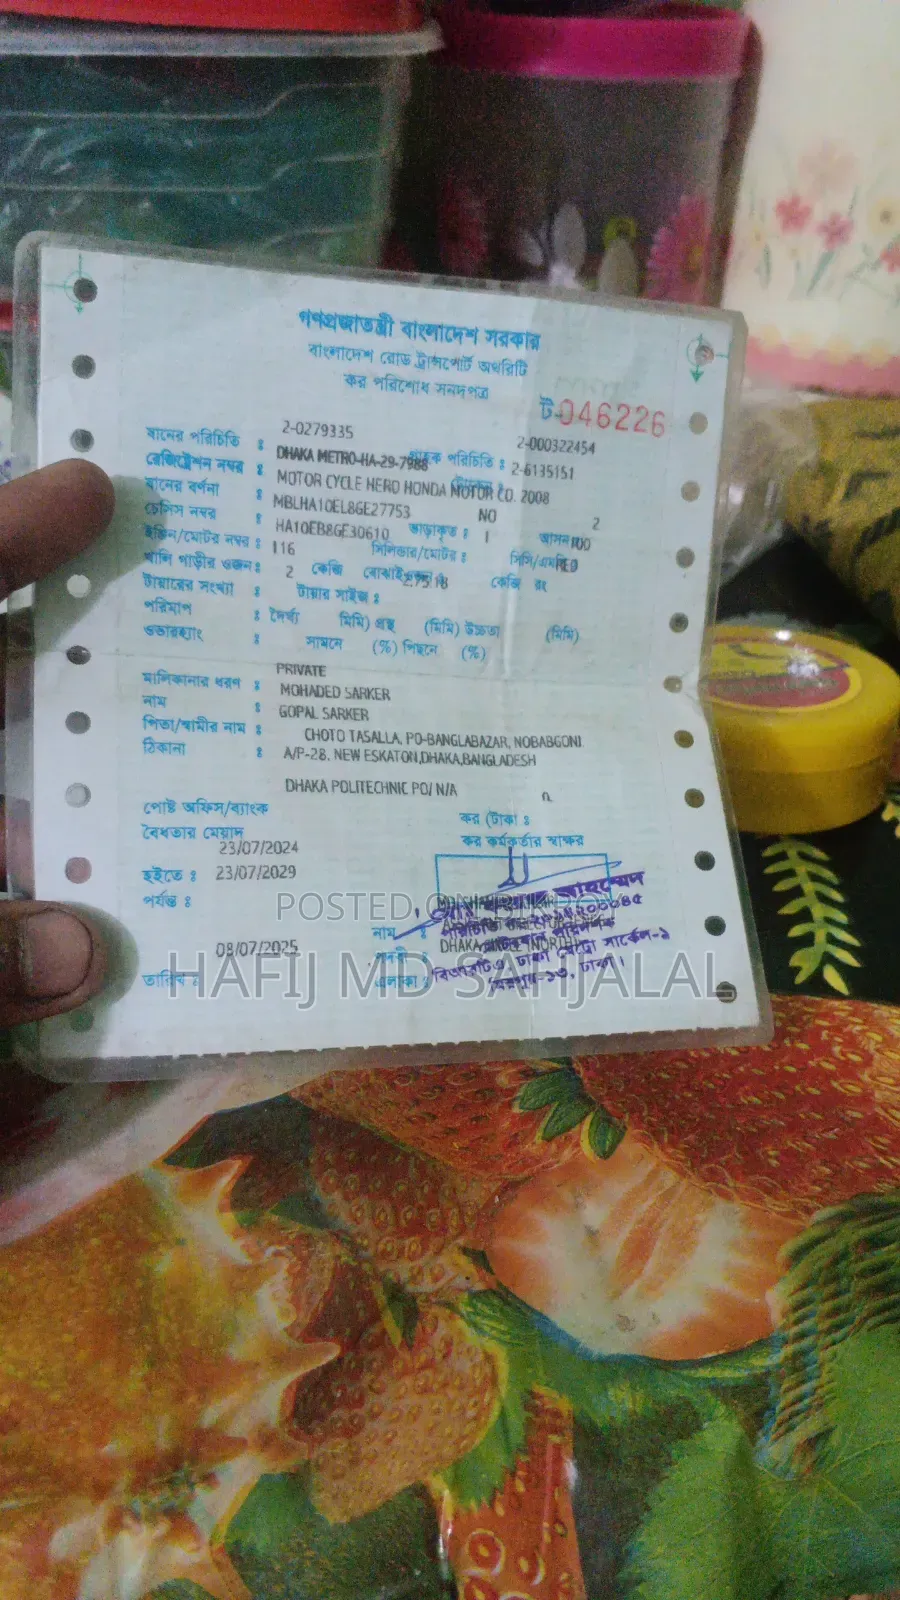 গণপ্রজাতন্ত্রী বাংলাদেশ সরকার
বাংলাদেশ রোড ট্রান্সপোর্ট অথরিটি
কর পরিশোধ সনদপত্র
ট-046226
যানের পরিচিতি : 2-0279335 গ্রাহক পরিচিতি : 2-000322454
রেজিস্ট্রেশন নম্বর : DHAKA METRO-HA-29-7988 2-6135151
যানের বর্ণনা : MOTOR CYCLE HERO HONDA MOTOR CO. 2008
চেসিস নম্বর : MBLHA10EL8GE27753 ভাড়াকৃত : NO আসন 2
ইঞ্জিন/মোটর নম্বর : HA10EB8GE30610 সিলিন্ডার/মোটর : 1 সিসি/এম 100
খালি গাড়ীর ওজন : 116 কেজি বোঝাই কেজি রং RED
টায়ারের সংখ্যা : 2 টায়ার সাইজ : 2.75.18
পরিমাপ : দৈর্ঘ্য মিমি) প্রস্থ (মিমি) উচ্চতা (মিমি)
ওভারহ্যাং : সামনে (%) পিছনে (%)
মালিকানার ধরণ : PRIVATE
নাম : MOHADED SARKER
পিতা/স্বামীর নাম : GOPAL SARKER
ঠিকানা : CHOTO TASALLA, PO-BANGLABAZAR, NOBABGONJ
A/P-28, NEW ESKATON,DHAKA,BANGLADESH
পোষ্ট অফিস/ব্যাংক DHAKA POLITECHNIC PO/ N/A
কর (টাকা :
বৈধতার মেয়াদ কর কর্মকর্তার স্বাক্ষর
হইতে : 23/07/2024
পর্যন্ত : 23/07/2029
নাম :
DHAKA CIRCLE (NORTH)
তারিখ : 08/07/2025 এলাকা :
বিআরটিএ, ঢাকা মেট্রো সার্কেল-১
মিরপুর-১৩, ঢাকা।
POSTED ON
HAFIJ MD SAHJALAL